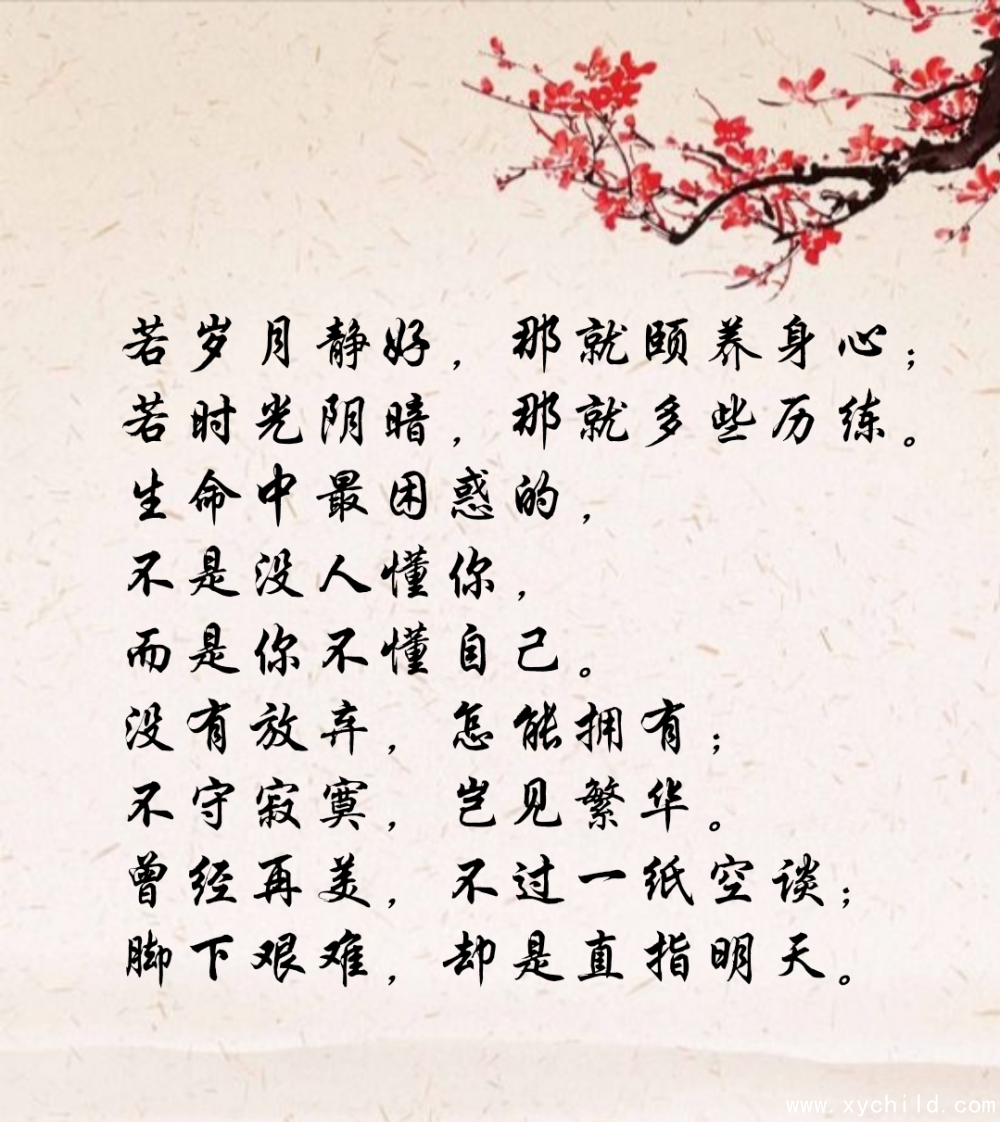 若岁月静好，那就颐养身心；
若时光阴暗，那就多些历练。
生命中最困惑的，
不是没人懂你，
而是你不懂自己。
没有放弃，怎能拥有；
不守寂寞，岂见繁华。
曾经再美，不过一纸空谈；
脚下艰难，却是直指明天。
www.xychild.com